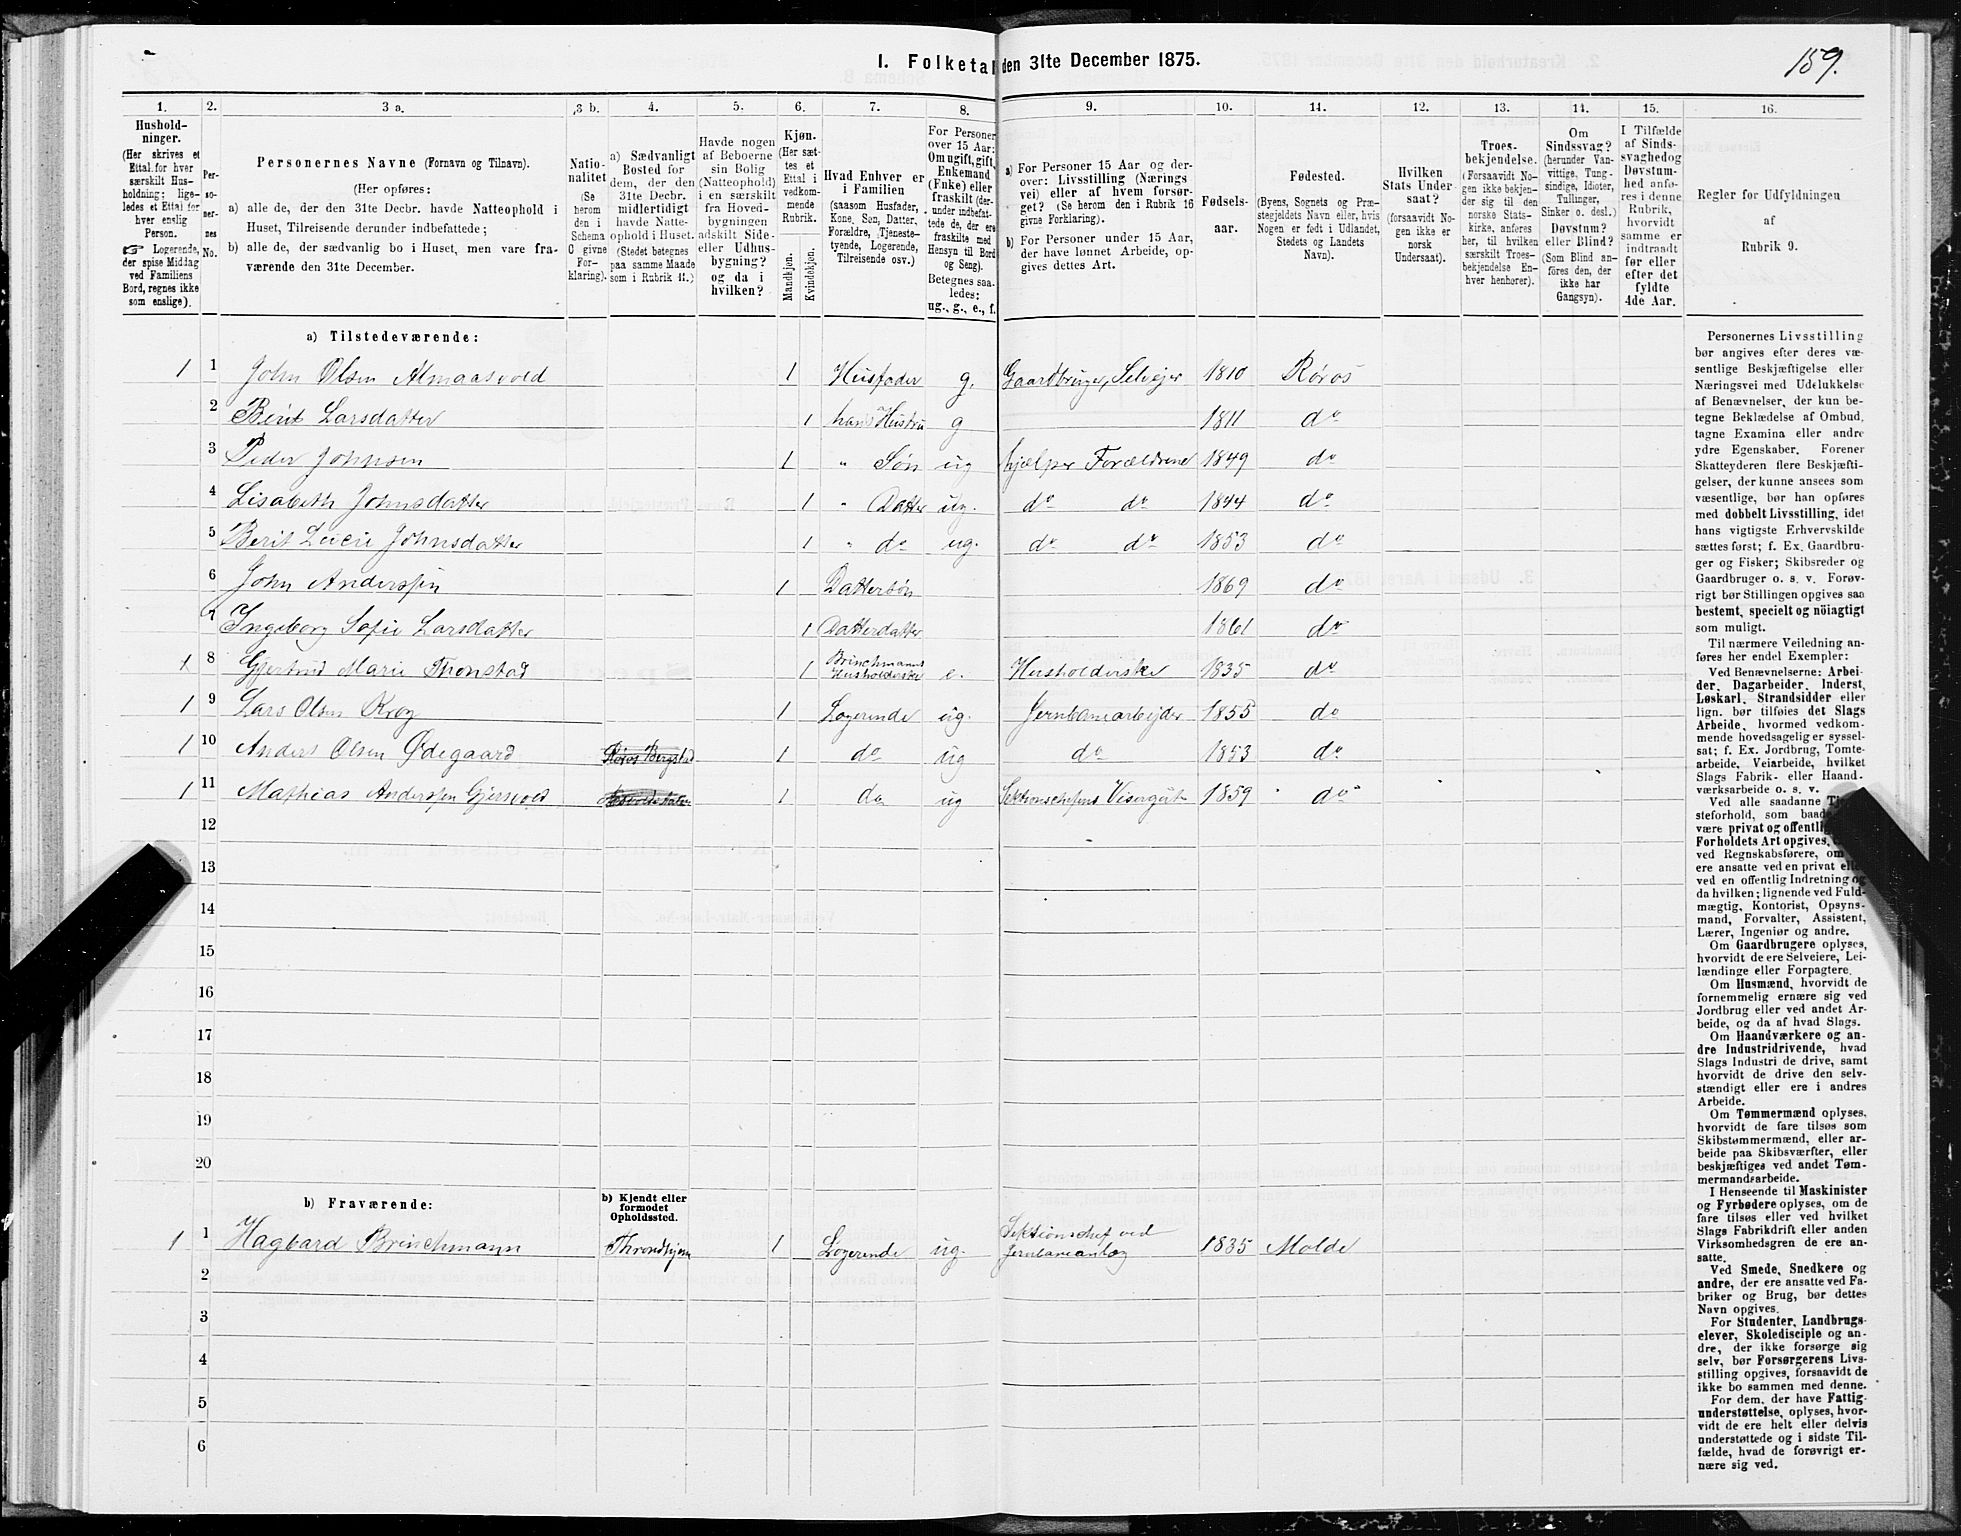 I. Folketal den 31te December 1875.
159.
1. 2. 3 a. 3 b. 4. 5. 6. 7. 8. 9. 10. 11. 12. 13. 14. 15. 16.
Hushold-
ninger.
(Her skrives et
Ettal for hver
særskilt Hus-
holdning; lige-
ledes et Ettal for
hver enslig
Person.
☞ Logerende,
der spise Middag
ved Familiens
Bord, regnes ikke
som enslige).
Per-
so-
ner-
nes
No.
Personernes Navne (Fornavn og Tilnavn).
(Her opføres:
a) alle de, der den 31te Decbr. havde Natteophold i
Huset, Tilreisende derunder indbefattede;
b) alle de, der sædvanlig bo i Huset, men vare fra-
værende den 31te December.
Natio-
nalitet
(Se
herom
den i
Schema
C givne
For-
klaring).
a) Sædvanligt
Bosted for
dem, der den
31te Decbr.
midlertidigt
havde Natte-
ophold i Huset.
(Stedet betegnes
paa samme Maade
som i Rubrik 11.)
Havde nogen
af Beboerne
sin Bolig
(Natteophold)
i en særskilt
fra Hoved-
bygningen
adskilt Side-
eller Udhus-
bygning?
og da i
hvilken?
Kjøn.
(Her sæt-
tes et
Ettal i
vedkom-
mende
Rubrik.
Mandkjøn.
Kvindekjøn.
Hvad Enhver er
i Familien
(saasom Husfader,
Kone, Søn, Datter,
Forældre, Tjeneste-
tyende, Logerende,
Tilreisende osv.)
For Personer
over 15 Aar:
Om ugift, gift,
Enkemand
(Enke) eller
fraskilt (der-
under indbefat-
tede de, der ere
fraskilte med
Hensyn til Bord
og Seng).
Betegnes saa-
ledes:
ug., g., e., f.
a) For Personer 15 Aar og der-
over: Livsstilling (Nærings
vei) eller af hvem forsør-
get? (Se herom den i Rubrik 16
givne Forklaring).
b) For Personer under 15 Aar,
der have lønnet Arbeide, op-
gives dettes Art.
Fødsels-
aar.
Fødested.
(Byens, Sognets og Præ-
stegjeldets Navn eller, hvis
Nogen er født i Udlandet,
Stedets og Landets
Navn).
Hvilken
Stats Under-
saat?
(forsaavidt No-
gen ikke er
norsk
Undersaat).
Troes-
bekjendelse.
(Forsaavidt No-
gen ikke bekjen-
der sig til den
norske Stats-
kirke, anføres
her, til hvilken
særskilt Troes-
bekjendelse En-
hver henhører).
Om
Sindssvag?
(herunder Van-
vittige, Tung-
sindige, Idioter,
Tullinger,
Sinker o. desl.)
Døvstum?
eller Blind?
(Som Blind an-
føres den, der
ikke har
Gangsyn).
I Tilfælde
af Sinds-
svaghed og
Døvstum-
hed anfø-
res i denne
Rubrik,
hvorvidt
samme er
indtraadt
før eller
efter det
fyldte
4de Aar.
Regler for Udfyldningen
af
Rubrik 9.
a) Tilstedeværende:
1 1 John Olsen Almaasvold 1 Husfader g. Gaardbruger, Selvejer 1810 Røros
2 Berit Larsdatter 1 hans Hustru g 1811 do
3 Peder Johnsen 1 " Søn ug hjælper Forældrene 1849 do
4 Lisabeth Johnsdatter 1 " Datter ug. do do 1844 do
5 Berit Johnsdatter 1 " do ug. do do 1853 do
6 John Anderssen 1 Dattersøn 1869 do
7 Ingeborg Sofie Larsdatter 1 Datterdatter 1861 do
1 8 Gjertrud Marie Thonstad 1 Brinchmanns Husholderske e. Husholderske 1835 do
1 9 Lars Olsen Krog 1 Logerende ug. Jernbanearbejder 1855 do
1 10 Anders Olsen Ødegaard Røros Bergstad 1 do ug do 1853 do
1 11 Mathias Anderssen Gjersvold 1 do ug Sektionschefens Visergut 1859 do
12
13
14
15
16
17
18
19
20
b) Fraværende:
b) Kjendt eller
formodet
Opholdssted.
1 1 Hagbard Brinchmann Throndhjem 1 Logerende ug. Sektionschef ved Jernbaneanlæg 1835 Molde
2
3
4
5
6
Personernes Livsstilling
bør angives efter deres væ-
sentlige Beskjæftigelse eller
Næringsvei med Udelukkelse
af Benævnelser, der kun be-
tegne Beklædelse af Ombud,
tagne Examina eller andre
ydre Egenskaber. Forener
Skatteyderen flere Beskjæfti-
gelser, der kunne ansees som
væsentlige, bør han opføres
med dobbelt Livsstilling, idet
hans vigtigste Erhvervskilde
sættes først; f. Ex. Gaardbru-
ger og Fisker; Skibsreder og
Gaardbruger o. s. v. Forøv-
rigt bør Stillingen opgives saa
bestemt, specielt og nöiagtigt
som muligt.
Til nærmere Veiledning an-
føres her endel Exempler:
Ved Benævnelserne: Arbei-
der, Dagarbeider, Inderst,
Løskarl, Strandsidder eller
lign. bør tilføies det Slags
Arbeide, hvormed vedkom-
mende hovedsagelig er syssel-
sat; f. Ex. Jordbrug, Tomte-
arbeide, Veiarbeide, hvilket
Slags Fabrik- eller Haand-
værksarbeide o. s. v.
Ved alle saadanne
steforhold, som baade
være privat og offentlig
Forholdets Art opgives,
ved Regnskabsførere, om
ere ansatte ved en privat eller
ved en offentlig Indretning og
da hvilken; lignende ved Fuld-
mægtig, Kontorist, Opsyns-
mand, Forvalter, Assistent,
Lærer, Ingeniør og andre.
Om Gaardbrugere oplyses,
hvorvidt de ere Selveiere, Lei-
lændinge eller Forpagtere.
Om Husmænd, hvorvidt de
fornemmelig ernære sig ved
Jordbrug eller ved andet Ar-
beide, og da af hvad Slags.
Om Haandværkere og an-
dre Industridrivende, hvad
Slags Industri de drive, samt
hvorvidt de drive den selv-
stændigt eller ere i andres
Arbeide.
Om Tømmermænd oplyses,
hvorvidt de fare tilsøs som
Skibstømmermænd, eller ar-
beide paa Skibsværfter, eller
beskjæftiges ved andet Tøm-
mermandsarbeide.
I Henseende til Maskinister
og Fyrbødere oplyses, om de
fare tilsøs eller ved hvilket
Slags Fabrikdrift eller anden
Virksomhedsgren de ere an-
satte.
Ved Smede, Snedkere og
andre, der ere ansatte ved Fa-
briker og Brug, bør dettes
Navn opgives.
For Studenter, Landbrugs-
elever, Skoledisciple og an-
dre, der ikke forsørge sig
selv, bør Forsørgerens Livs-
stilling opgives, forsaavidt de
ikke bo sammen med denne.
For dem, der have Fattig-
understøttelse, oplyses, hvor-
vidt de ere helt eller delvis
understøttede og i sidste Til-
fælde, hvad de forøvrigt er-
nære sig ved.